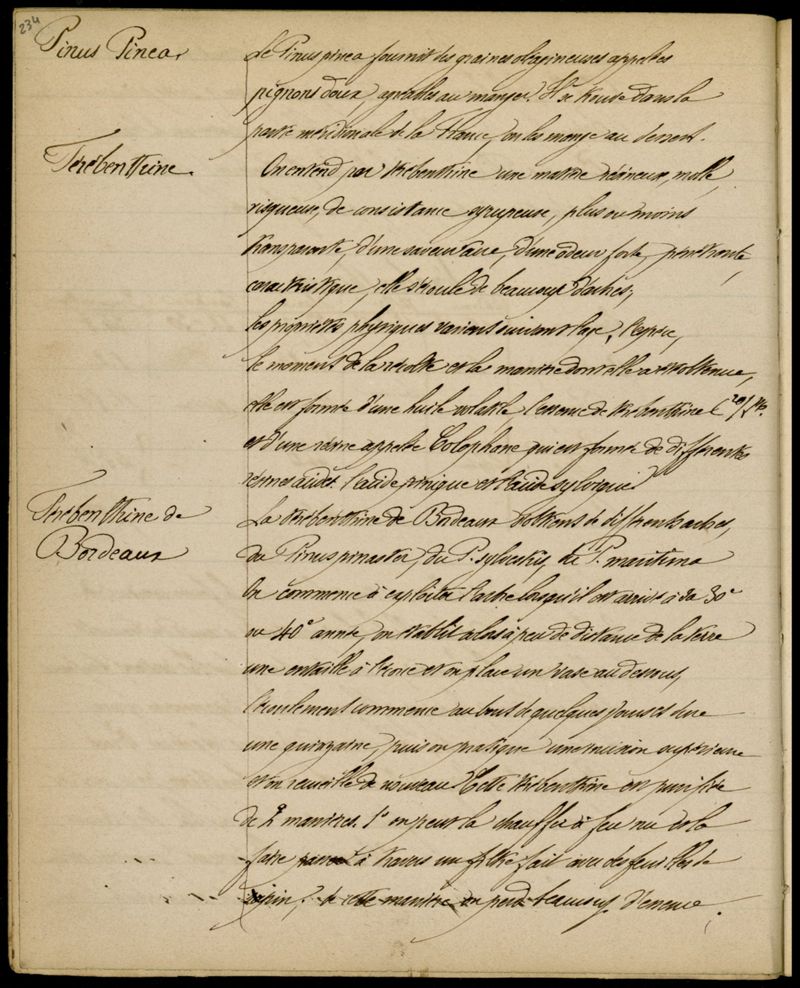 234
Pinus Pinea
Le Pinus pinea fournit des graines oleagineuses appelées
pignons doux, agréables au manger. Il se trouve dans la
partie méridionale de la France, on les mange au dessert.
Térébenthine.
On entend par térébenthine une matière résineuse, molle,
visqueuse, de consistance syrupeuse, plus ou moins
transparente, d'une saveur âcre, d'une odeur forte, pénétrante,
caractéristique, elle s'écoule de beaucoup d'arbres,
les propriétés physiques varient suivant l'age, l'espèce,
le moment de la récolte et la manière dont elle a été obtenue,
elle est formée d'une huile volatile l'essence de térébenthine (20/
et d'une résine appelée Colophane qui est formée de différentes
résines acides. l'acide pinique et l'acide sylvique
Térébenthine de
Bordeaux
La térébenthine de Bordeaux s'obtient de différents arbres,
du Pinus pinaster, du P. sylvestris, du P. maritima
On commence à exploiter l'arbre lorsqu'il est arrivé à sa 30e
ou 40e année, on établit alors à peu de distance de la terre
une entaille à l'écorce et on place un vase au dessous,
l'écoulement commence au bout de quelques jours et dure
une quinzaine, puis on pratique une incision supérieure
et on recueille de nouveau. Cette térébenthine est purifiée
de 2 manières. 1° on peut la chauffer à feu nu et la
faire passer à travers un filtre fait avec des feuilles de
pin, de cette manière on perd beaucoup d'essence.